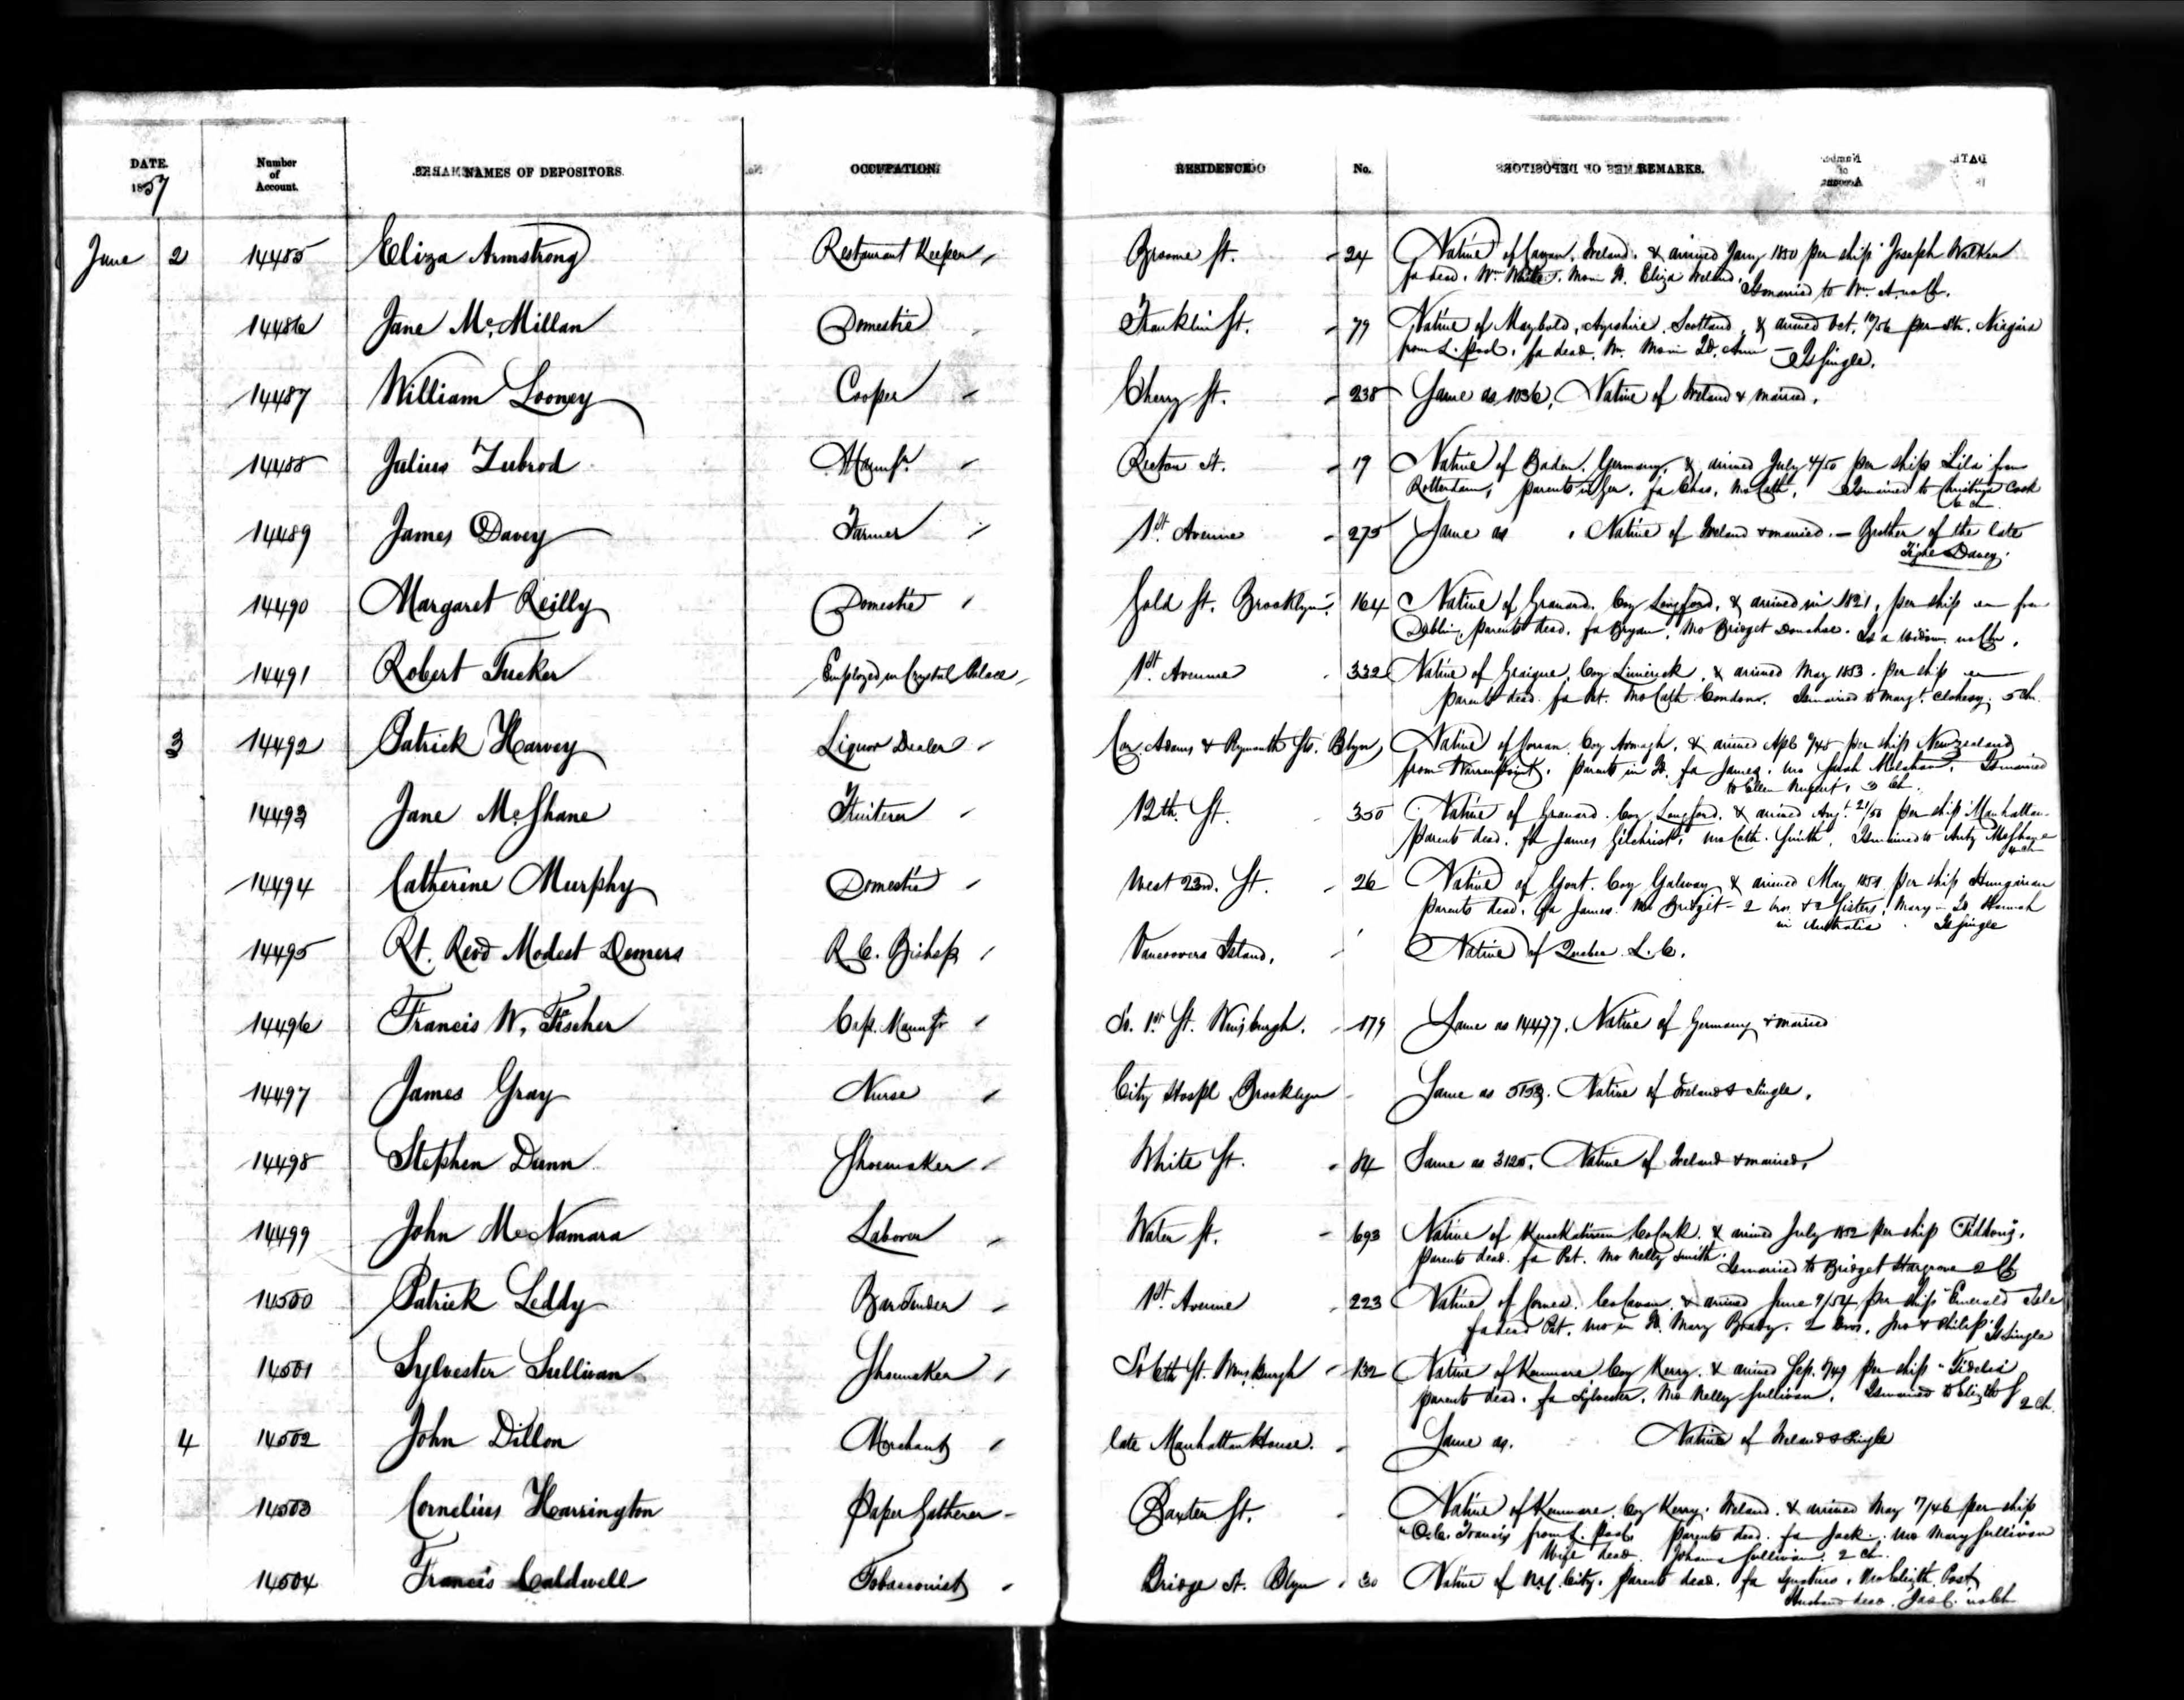 DATE. Number of Account. NAMES OF DEPOSITORS. OCCUPATION. RESIDENCE No. REMARKS.
1857
June 2 14485 Eliza Armstrong Restaurant Keeper Broome St. 24 Native of Cavan, Ireland. & arrived Jany 1850 per ship Joseph Walker
fa dead. Wm White. Mom in I. Eliza Ireland. Is married to Wm A. no Ch.
14486 Jane McMillan Domestic Franklin St. 79 Native of Maybold, Ayrshire, Scotland, & arrived Oct. 10/56 per Str. Niagara
from L. pool. fa dead. Wm. Mom in Id. Ann — Is Single.
14487 William Looney Cooper Cherry St. 238 Same as 1036, Native of Ireland & married.
14488 Julius Zubrod Manufr. Rector St. 19 Native of Baden, Germany, & arrived July 4/50 per ship Lila from
Rotterdam, parents in Ger. fa Chas. Mo Cath. Is married to Christina Cook
6 ch
14489 James Davey Farmer 1st. Avenue 275 Same as . Native of Ireland & married. — Brother of the late
Tighe Davey.
14490 Margaret Reilly Domestic Gold St. Brooklyn. 164 Native of Granard. Coy Longford, & arrived in 1821, per ship from
Dublin, parents dead. fa Bryan, Mo Bridget Donohoe. Is a Widow. no Chn.
14491 Robert Tucker Employed in Crystal Palace 1st. Avenue 332 Native of Graigue, Coy Limerick, & arrived May 1853. per ship
parents dead. fa Pat. Mo Cath Condon. Is married to Margt. Clohesy. 5 Ch.
3 14492 Patrick Harvey Liquor Dealer Cor. Adams & Plymouth Sts. Blyn Native of Coy Armagh, & arrived Apl 9/48 per ship New Zealand
from Warrenpoint. parents in Id. fa James. mo Sarah . Is married
to Ellen Nugent, 3 Ch.
14493 Jane McShane Fruiterer 12th. St. 350 Native of Granard. Coy Longford. & arrived Augt. 21/50 per ship Manhattan
parents dead. fa James Gilchrist, mo Cath. Smith. Is married to Anty McShane
4 ch
14494 Catherine Murphy Domestic West 23rd. St. 26 Native of Gort. Coy Galway & arrived May 1851 per ship Hungarian
parents dead. fa James. Mo Bridgit - 2 bros & 2 Sisters, Mary in Id Hannah
in Australia . Is single
14495 Rt. Revd Modest Demers R. C. Bishop Vancouvers Island, Native of Quebec L. C.
14496 Francis W. Fischer Cap. Manufr So. 1st. St. Wmsburgh. 179 Same as 14477. Native of Germany & married
14497 James Gray Nurse City Hospl Brooklyn Same as 5153. Native of Ireland & Single.
14498 Stephen Dunn Shoemaker White St. 84 Same as 3125. Native of Ireland & married.
14499 John McNamara Laborer Water St. 693 Native of Co Cork. & arrived July 1852 per ship
parents dead. fa Pat. Mo Nelly Smith. Is married to Bridget Hargrove 2 Ch
14500 Patrick Leddy Bartender 1st. Avenue 223 Native of Co Cavan. & arrived June 9/54 per ship "Emerald Isle
fa dead Pat. mo in Id. Mary Brady. 2 bros. Jno & Philip Is Single
14501 Sylvester Sullivan Shoemaker So 6th St. Wmsburgh 132 Native of Kenmare, Coy Kerry. & arrived Sep. 9/49 per ship "Fidelia
parents dead. fa Sylvester. Mo Nelly Sullivan. Is married to Elizth S
2 ch.
4 14502 John Dillon Merchant late Manhattan House. Same as. Native of Ireland & Single
14503 Cornelius Harrington Paper Gatherer Baxter St. Native of Kenmare. Coy Kerry. Ireland. & arrived May 7/46 per ship
Francis from L. pool parents dead. fa Jack. Mo Mary Sullivan
Wife dead. Johanna Sullivan. 2 ch.
14504 Francis Caldwell Tobacconist Bridge St. Blyn 30 Native of N.Y. City. parents dead. fa Ignatius. Mo Elizth. Post
Husband dead. Jas C. no Ch